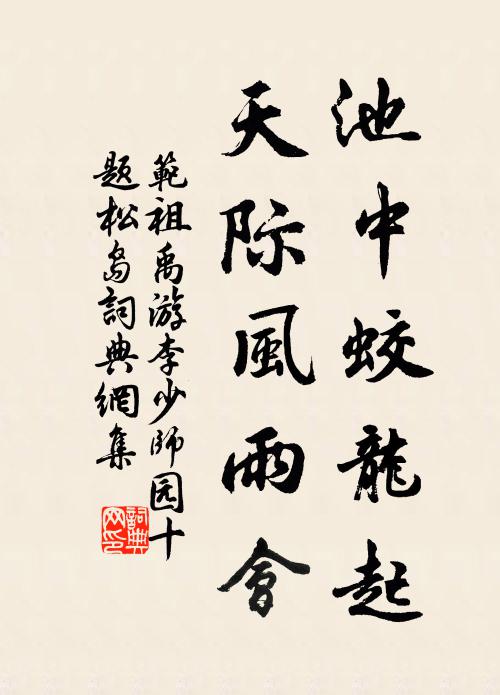 池中蛟龍起
天际風雨會
範祖禹游李少師园十
题松岛詞典網集
詞典
网印